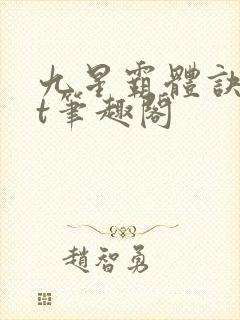 九星霸體訣
t筆趣閣
趙智勇